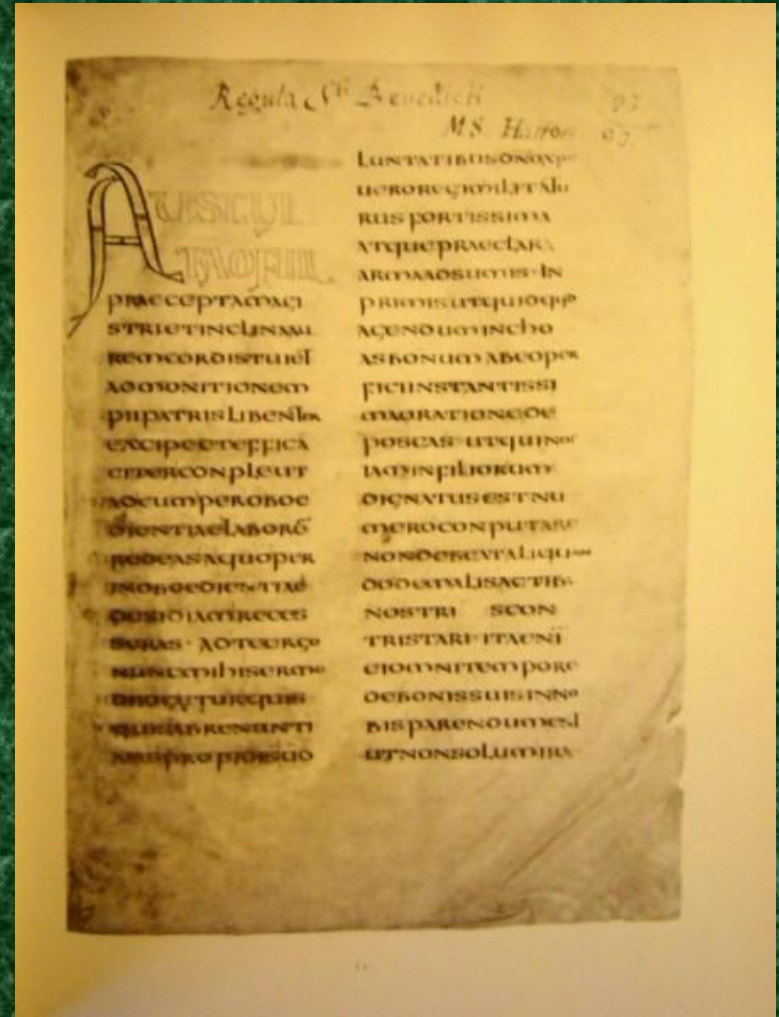 Regula Sti Benedicti
MS. Hatton 93
AUSCUL
TAOFILI
PRAECEPTAMAGI
STRIETINCLINAAU
REMCORDISTUIET
ADMONITIONEM
PIIPATRISLIBENTER
EXCIPEETEFFICA
CITERCONPLEUT
ADEUMPEROBOE
DIENTIAELABORĒ
REDEASAQUOPER
INOBOEDIENTIAE
DESIDIAMRECES
SERAS· ADTEERGO
NUNCMIHISERMO
LUNTATIBUSDNOXPO
UEROREGIMILITATU
RUSFORTISSIMA
ATQUEPRAECLARA
ARMAADSUMIS·IN
PRIMISUTQUIDQUID
AGENDUMINCHO
ASBONUMABEOPER
FICIINSTANTISSI
MAORATIONEDE
POSCAS·UTQUINOS
IAMINFILIORUM
DIGNATUSESTNU
MEROCONPUTARE
NONDEBEATALIQUANDO
DEMALISACTIB·
NOSTRI SCON
TRISTARI·ITAENI
EIOMNITEMPORE
DEBONISSUISINNO
BISPARENDUMEST
UTNONSOLUMIRA